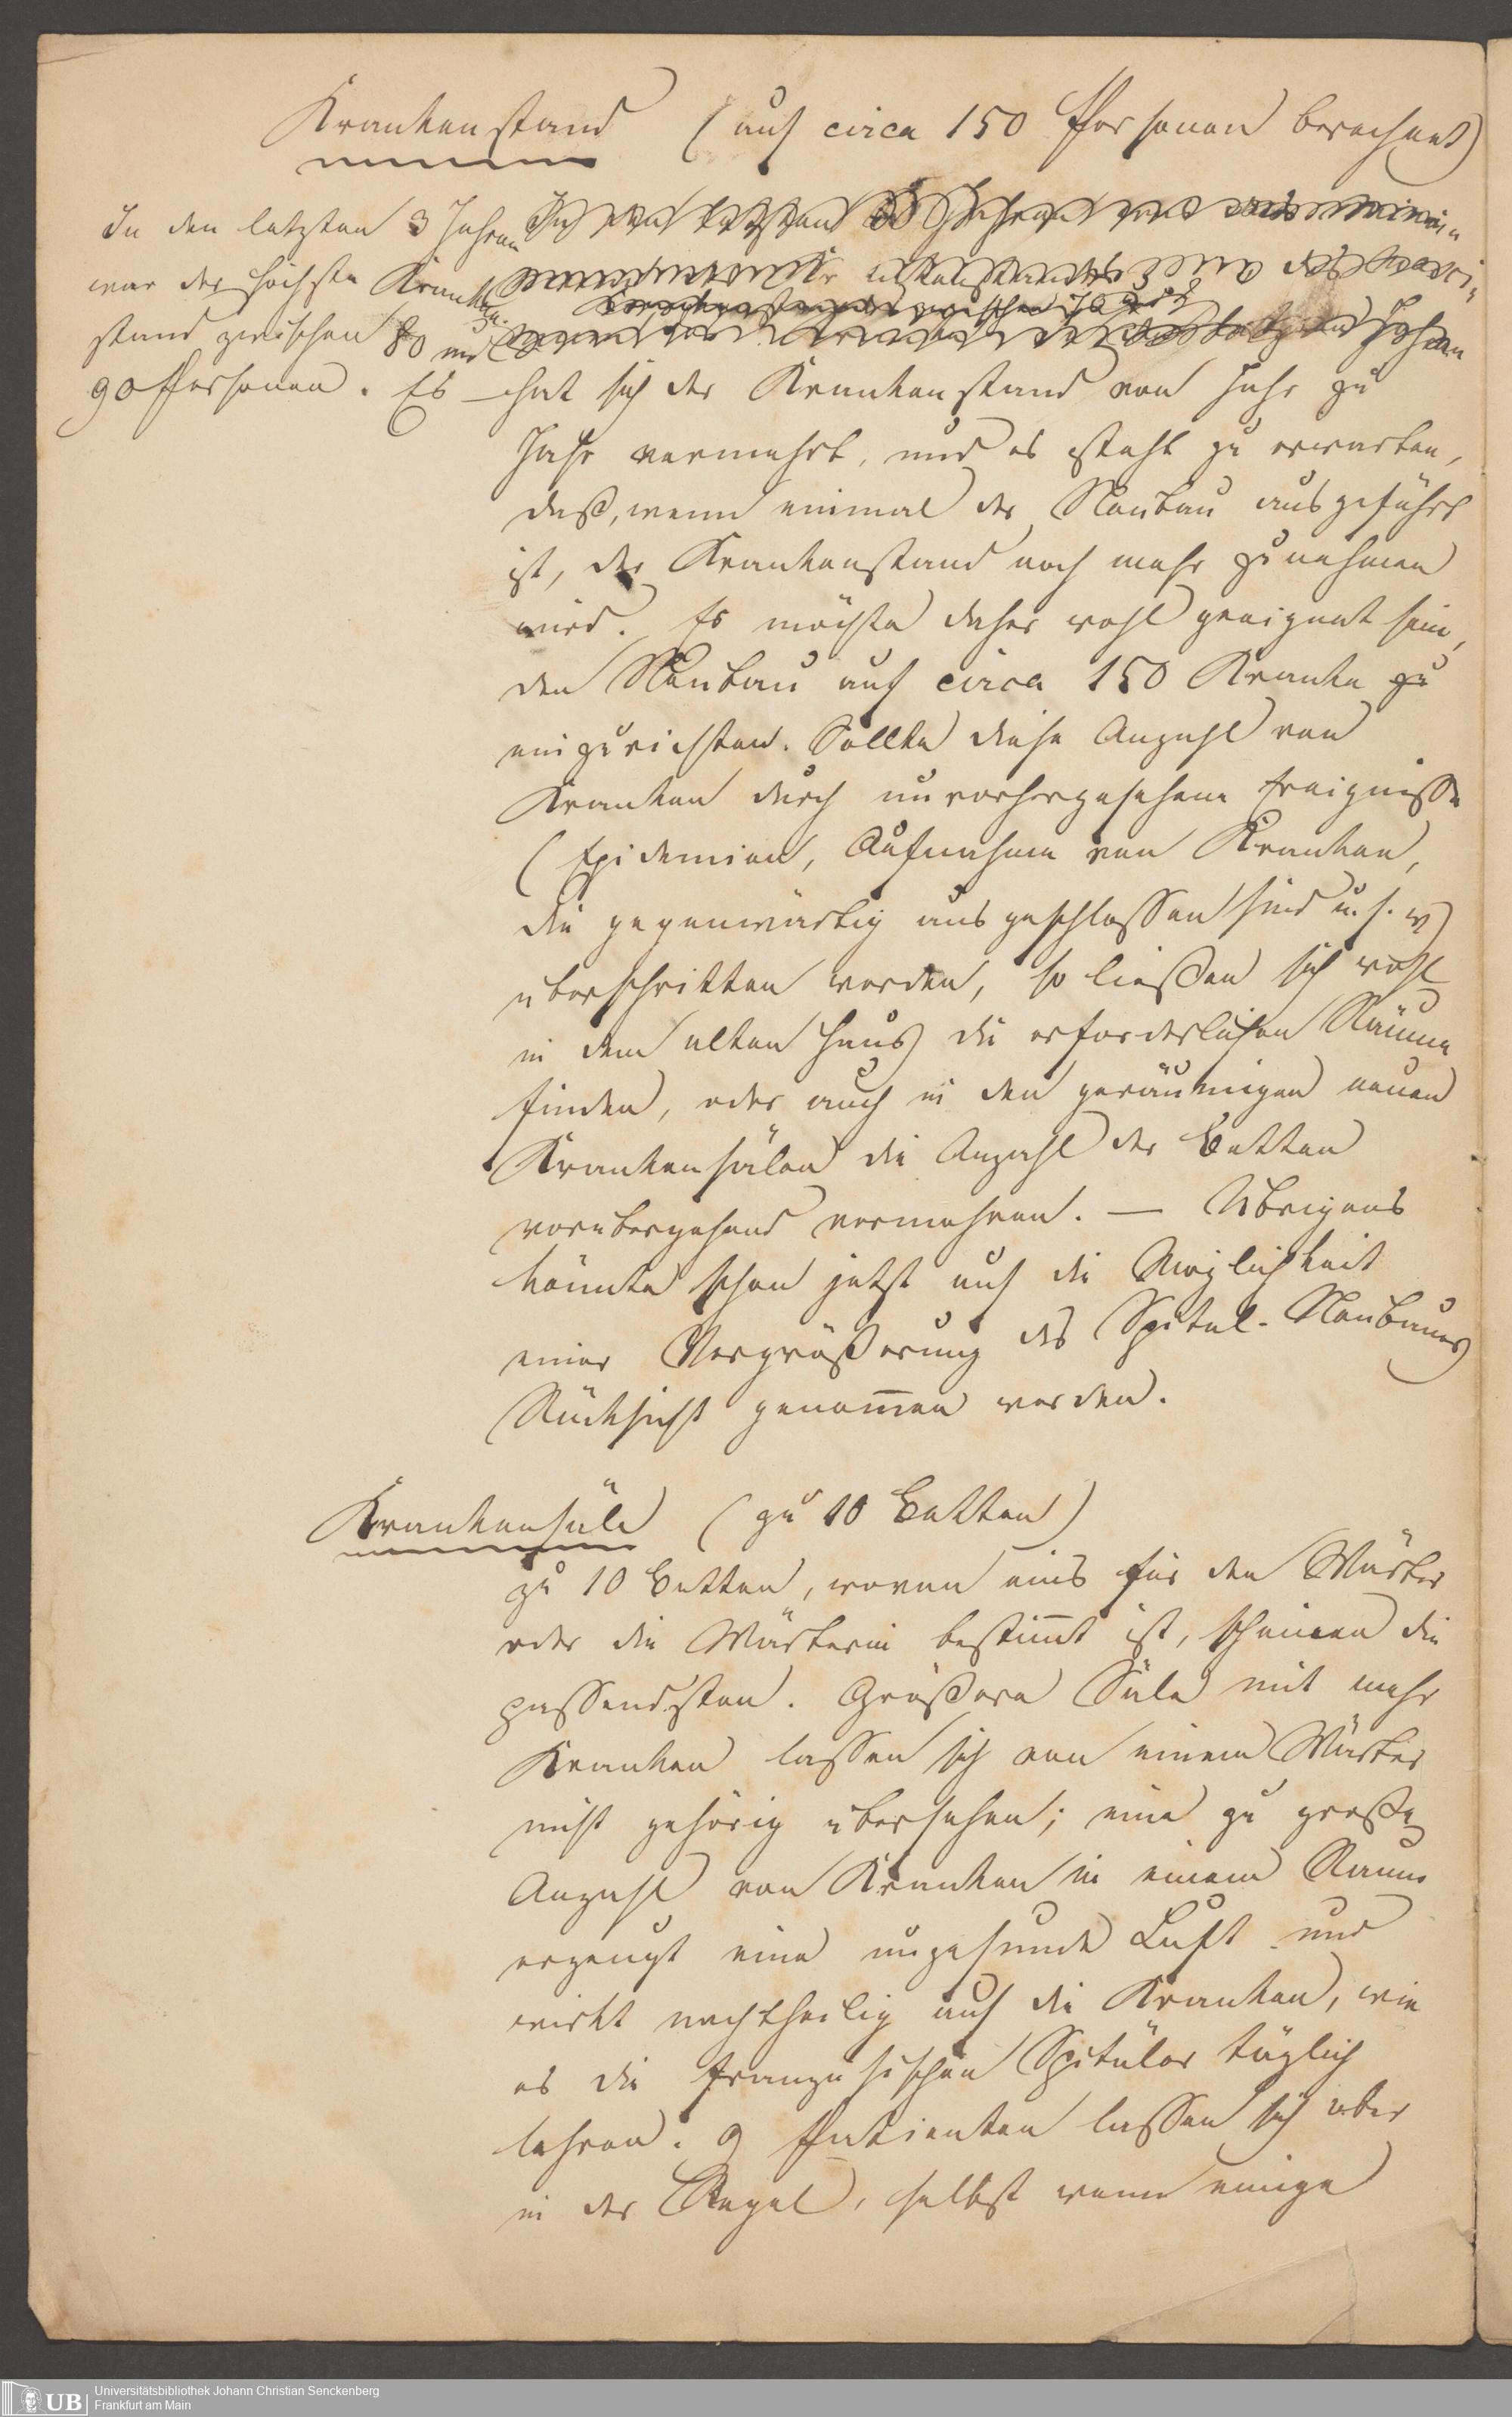 Krankenstand (auf circa 150 Personen berechnet)
In den letzten 3 Jahren
war der höchste Kranken-
stand zwischen 80 und
90 Personen. Es hat sich der Krankenstand von Jahr zu
Jahr vermehrt, und es steht zu erwarten,
daß, wenn einmal der Neubau ausgeführt
ist, der Krankenstand noch mehr zunehmen
wird. Es möchte daher wohl geeignet sein,
den Neubau auf circa 150 Kranke zu
einzurichten. Sollte diese Anzahl von
Kranken durch unvorhergesehene Ereignisse
(Epidemien, Aufnahme von Kranken,
die gegenwärtig ausgeschlossen sind u. s. w)
überschritten werden, so ließen sich wohl
in dem alten Haus die erforderlichen Räume
finden, oder auch in den geräumigen neuen
Krankensälen die Anzahl der Betten
vorübergehend vermehren. — Übrigens
könnte schon jetzt auf die Möglichkeit
einer Vergrößerung des Spital-Neubaues
Rücksicht genom̅en werden.
Krankensäle (zu 10 Betten)
zu 10 Betten, wovon eins für den Wärter
oder die Wärterin bestim̅t ist, scheinen die
passendsten. Größere Säle mit mehr
Kranken lassen sich von einem Wärter
nicht gehörig übersehen; eine zu große
Anzahl von Kranken in einem Raum
erzeugt eine ungesunde Luft und
wirkt nachtheilig auf die Kranken, wie
es die französischen Spitäler täglich
lehren. 9 Patienten lassen sich aber
in der Regel, selbst wenn einige
Universitätsbibliothek Johann Christian Senckenberg
Frankfurt am Main
UB